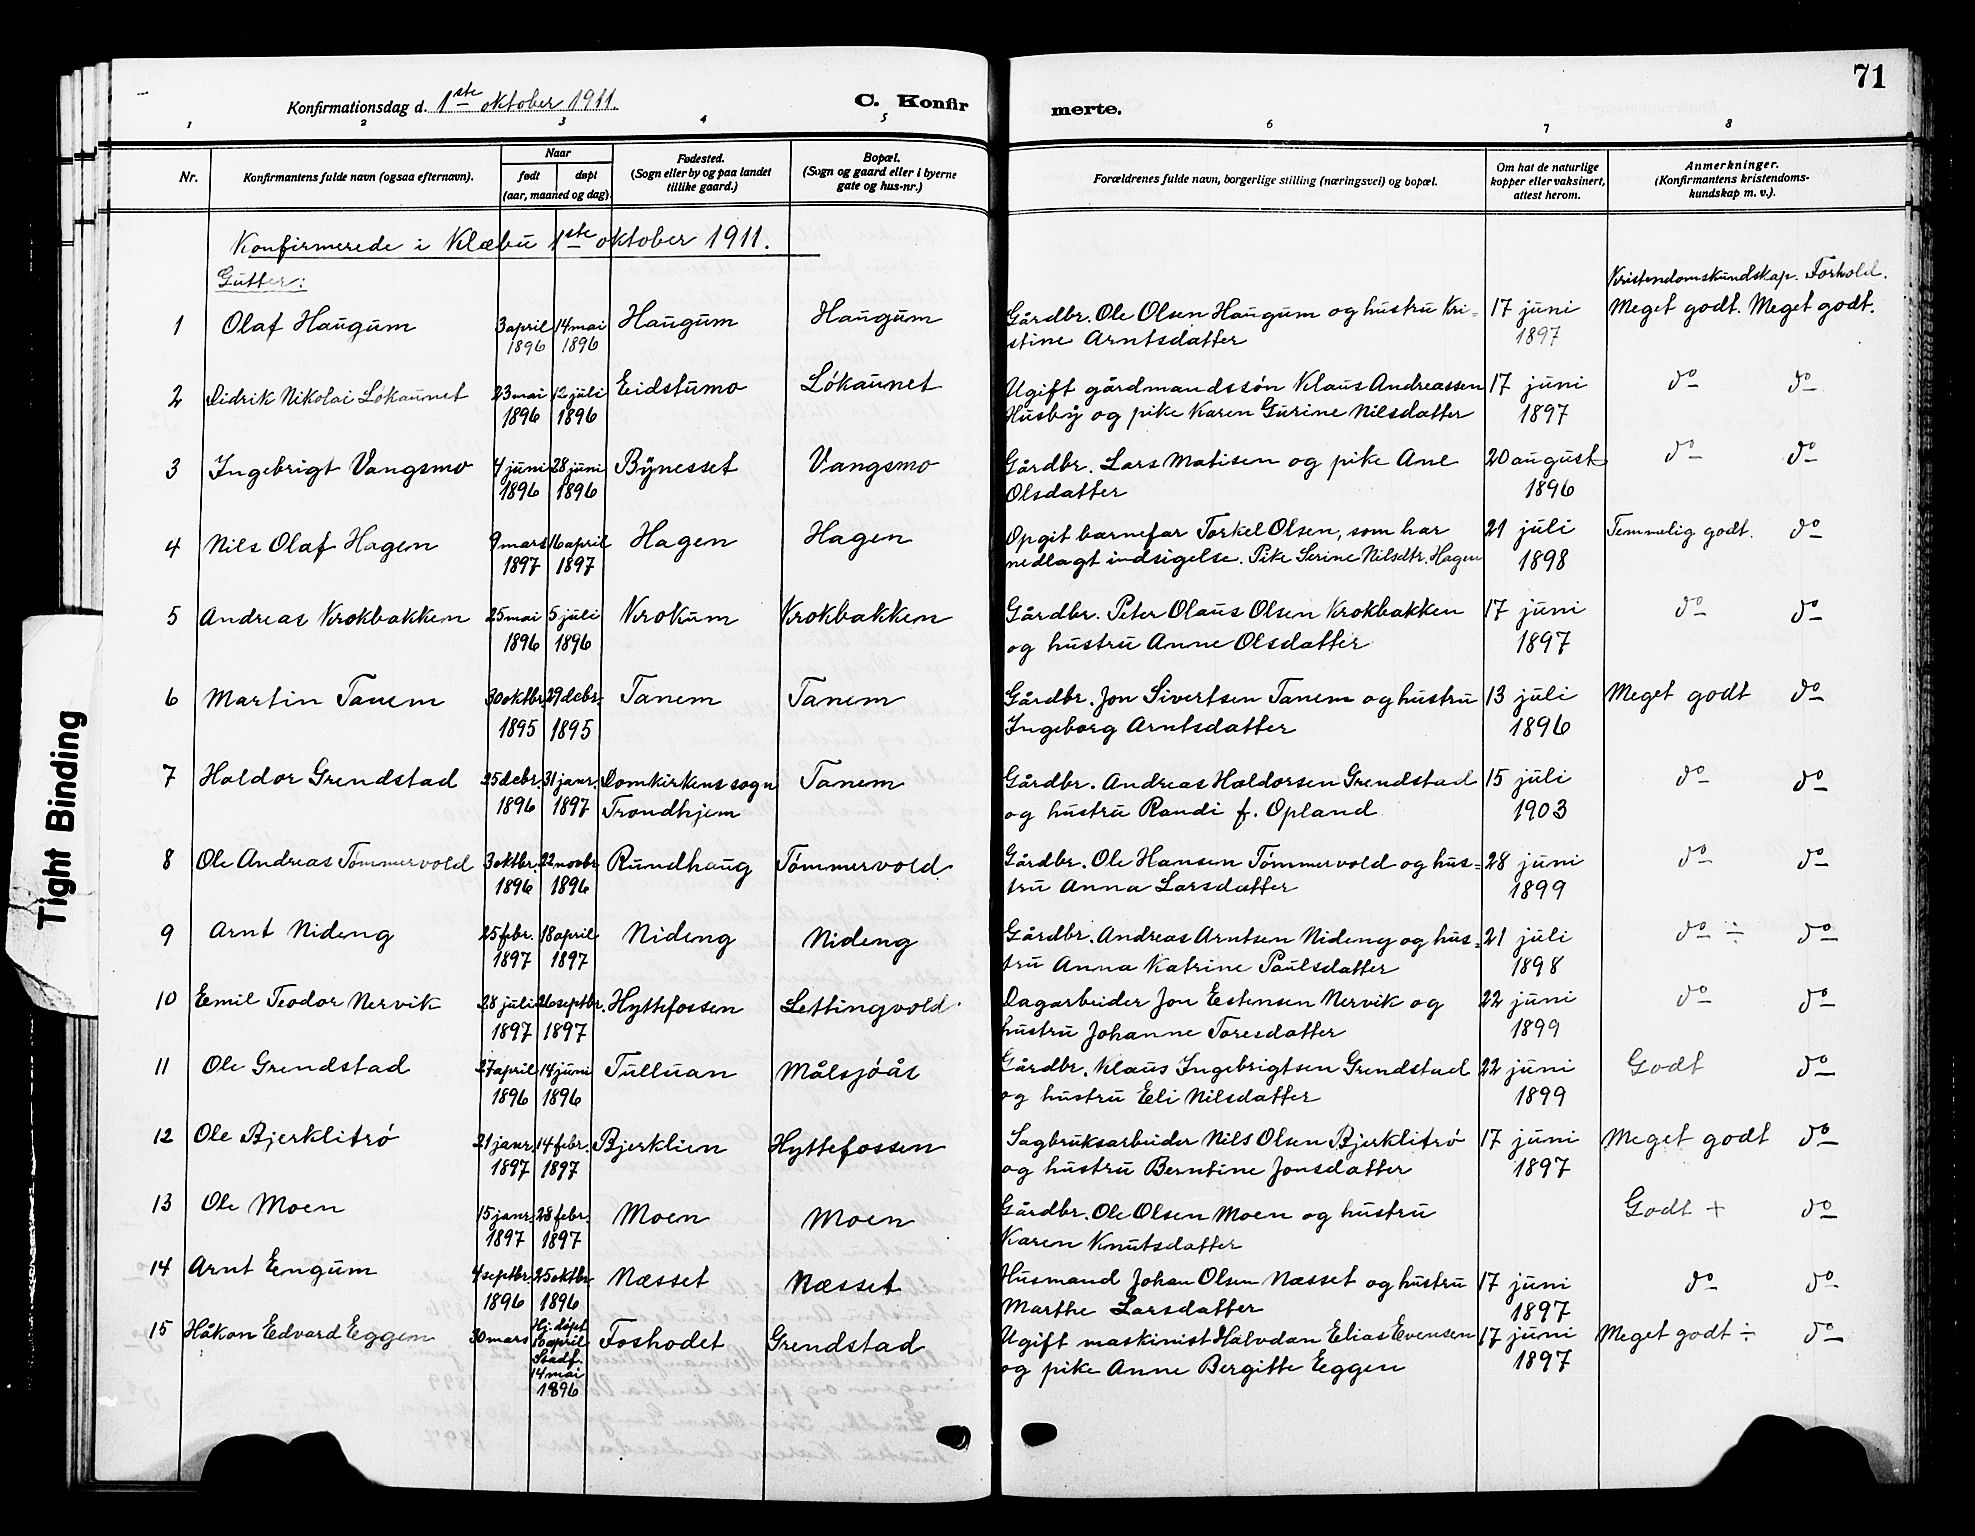 71
Konfirmationsdag d. 1ste oktober 1911.
C. Konfirmerte.
1 2 3 4 5 6 7 8
Nr.
Konfirmantens fulde navn (ogsaa efternavn).
Naar
født
døpt
(aar, maaned og dag).
Fødested.
(Sogn eller by og paa landet
tillike gaard.)
Bopæl.
(Sogn og gaard eller i byerne
gate og hus-nr.)
Forældrenes fulde navn, borgerlige stilling (næringsvei) og bopæl.
Om hat de naturlige
kopper eller vaksinert,
attest herom.
Anmerkninger.
(Konfirmantens kristendoms-
kundskap m. v.).
Konfirmerede i Klæbu 1ste oktober 1911.
Gutter:
Kristendomskundskap. Forhold.
1 Olaf Haugum 3 april 14 mai Haugum Haugum Gårdbr. Ole Olsen Haugum og hustru Kri- 17 juni Meget godt. Meget godt.
1896 1896 stine Arntsdatter 1897
2 Didrik Nikolai Løkaunet 23 mai 12 juli Eidstumo Løkaunet Ugift gårdmandssøn Klaus Andreassen 17 juni do do
1896 1896 Husby og pike Karen Gurine Nilsdatter 1897
3 Ingebrigt Vangsmo 4 juni 28 juni Bynesset Vangsmo Gårdbr. Lars Matisen og pike Ane 20 august do do
1896 1896 Olsdatter 1896
4 Nils Olaf Hagen 9 mars 16 april Hagen Hagen Opgit barnefar Torkel Olsen, som har 21 juli Temmelig godt. do
1897 1897 nedlagt indsigelse. Pike Serine Nilsdtr. Hagen 1898
5 Andreas Krokbakken 25 mai 5 juli Krokum Krokbakken Gårdbr. Peter Olaus Olsen Krokbakken 17 juni do do
1896 1896 og hustru Anne Olsdatter 1897
6 Martin Tanem 30 oktbr. 29 debr. Tanem Tanem Gårdbr. Jon Sivertsen Tanem og hustru 13 juli Meget godt do
1895 1895 Ingeborg Arntsdatter 1896
7 Haldor Grendstad 25 debr. 31 janr. Domkirkens sogn Tanem Gårdbr. Andreas Haldorsen Grendstad 15 juli do do
1896 1897 Trondhjem og hustru Randi f. Opland 1903
8 Ole Andreas Tømmervold 3 oktbr. 22 novbr. Rundhaug Tømmervold Gårdbr. Ole Hansen Tømmervold og hus- 28 juni do do
1896 1896 tru Anna Larsdatter 1899
9 Arnt Nideng 25 febr. 18 april Nideng Nideng Gårdbr. Andreas Arntsen Nideng og hus- 21 juli do ÷ do
1897 1897 tru Anna Katrine Paulsdatter 1898
10 Emil Teodor Nervik 28 juli 26 septbr. Hyttefossen Lettingvold Dagarbeider Jon Estensen Nervik og 22 juni do do
1897 1897 hustru Johanne Toresdatter 1899
11 Ole Grendstad 27 april 14 juni Tulluan Målsjøås Gårdbr. Klaus Ingebrigtsen Grendstad 22 juni Godt do
1896 1896 og hustru Eli Nilsdatter 1899
12 Ole Bjerklitrø 21 janr. 14 febr. Bjerklien Hyttefossen Sagbruksarbeider Nils Olsen Bjerklitrø 17 juni Meget godt do
1897 1897 og hustru Berntine Jonsdatter 1897
13 Ole Moen 15 janr. 28 febr. Moen Moen Gårdbr. Ole Olsen Moen og hustru Godt + do
1897 1897 Karen Knutsdatter
14 Arnt Engum 4 septbr. 25 oktbr. Næsset Næsset Husmand Johan Olsen Næsset og hustru 17 juni do do
1896 1896 Marthe Larsdatter 1897
15 Håkon Edvard Eggen 30 mars Hj. døpt Foshodet Grendstad Ugift maskinist Halvdan Elias Evensen 17 juni Meget godt ÷ do
april
Stadf.
14 mai og pike Anne Bergitte Eggen 1897
1896
Tight Binding